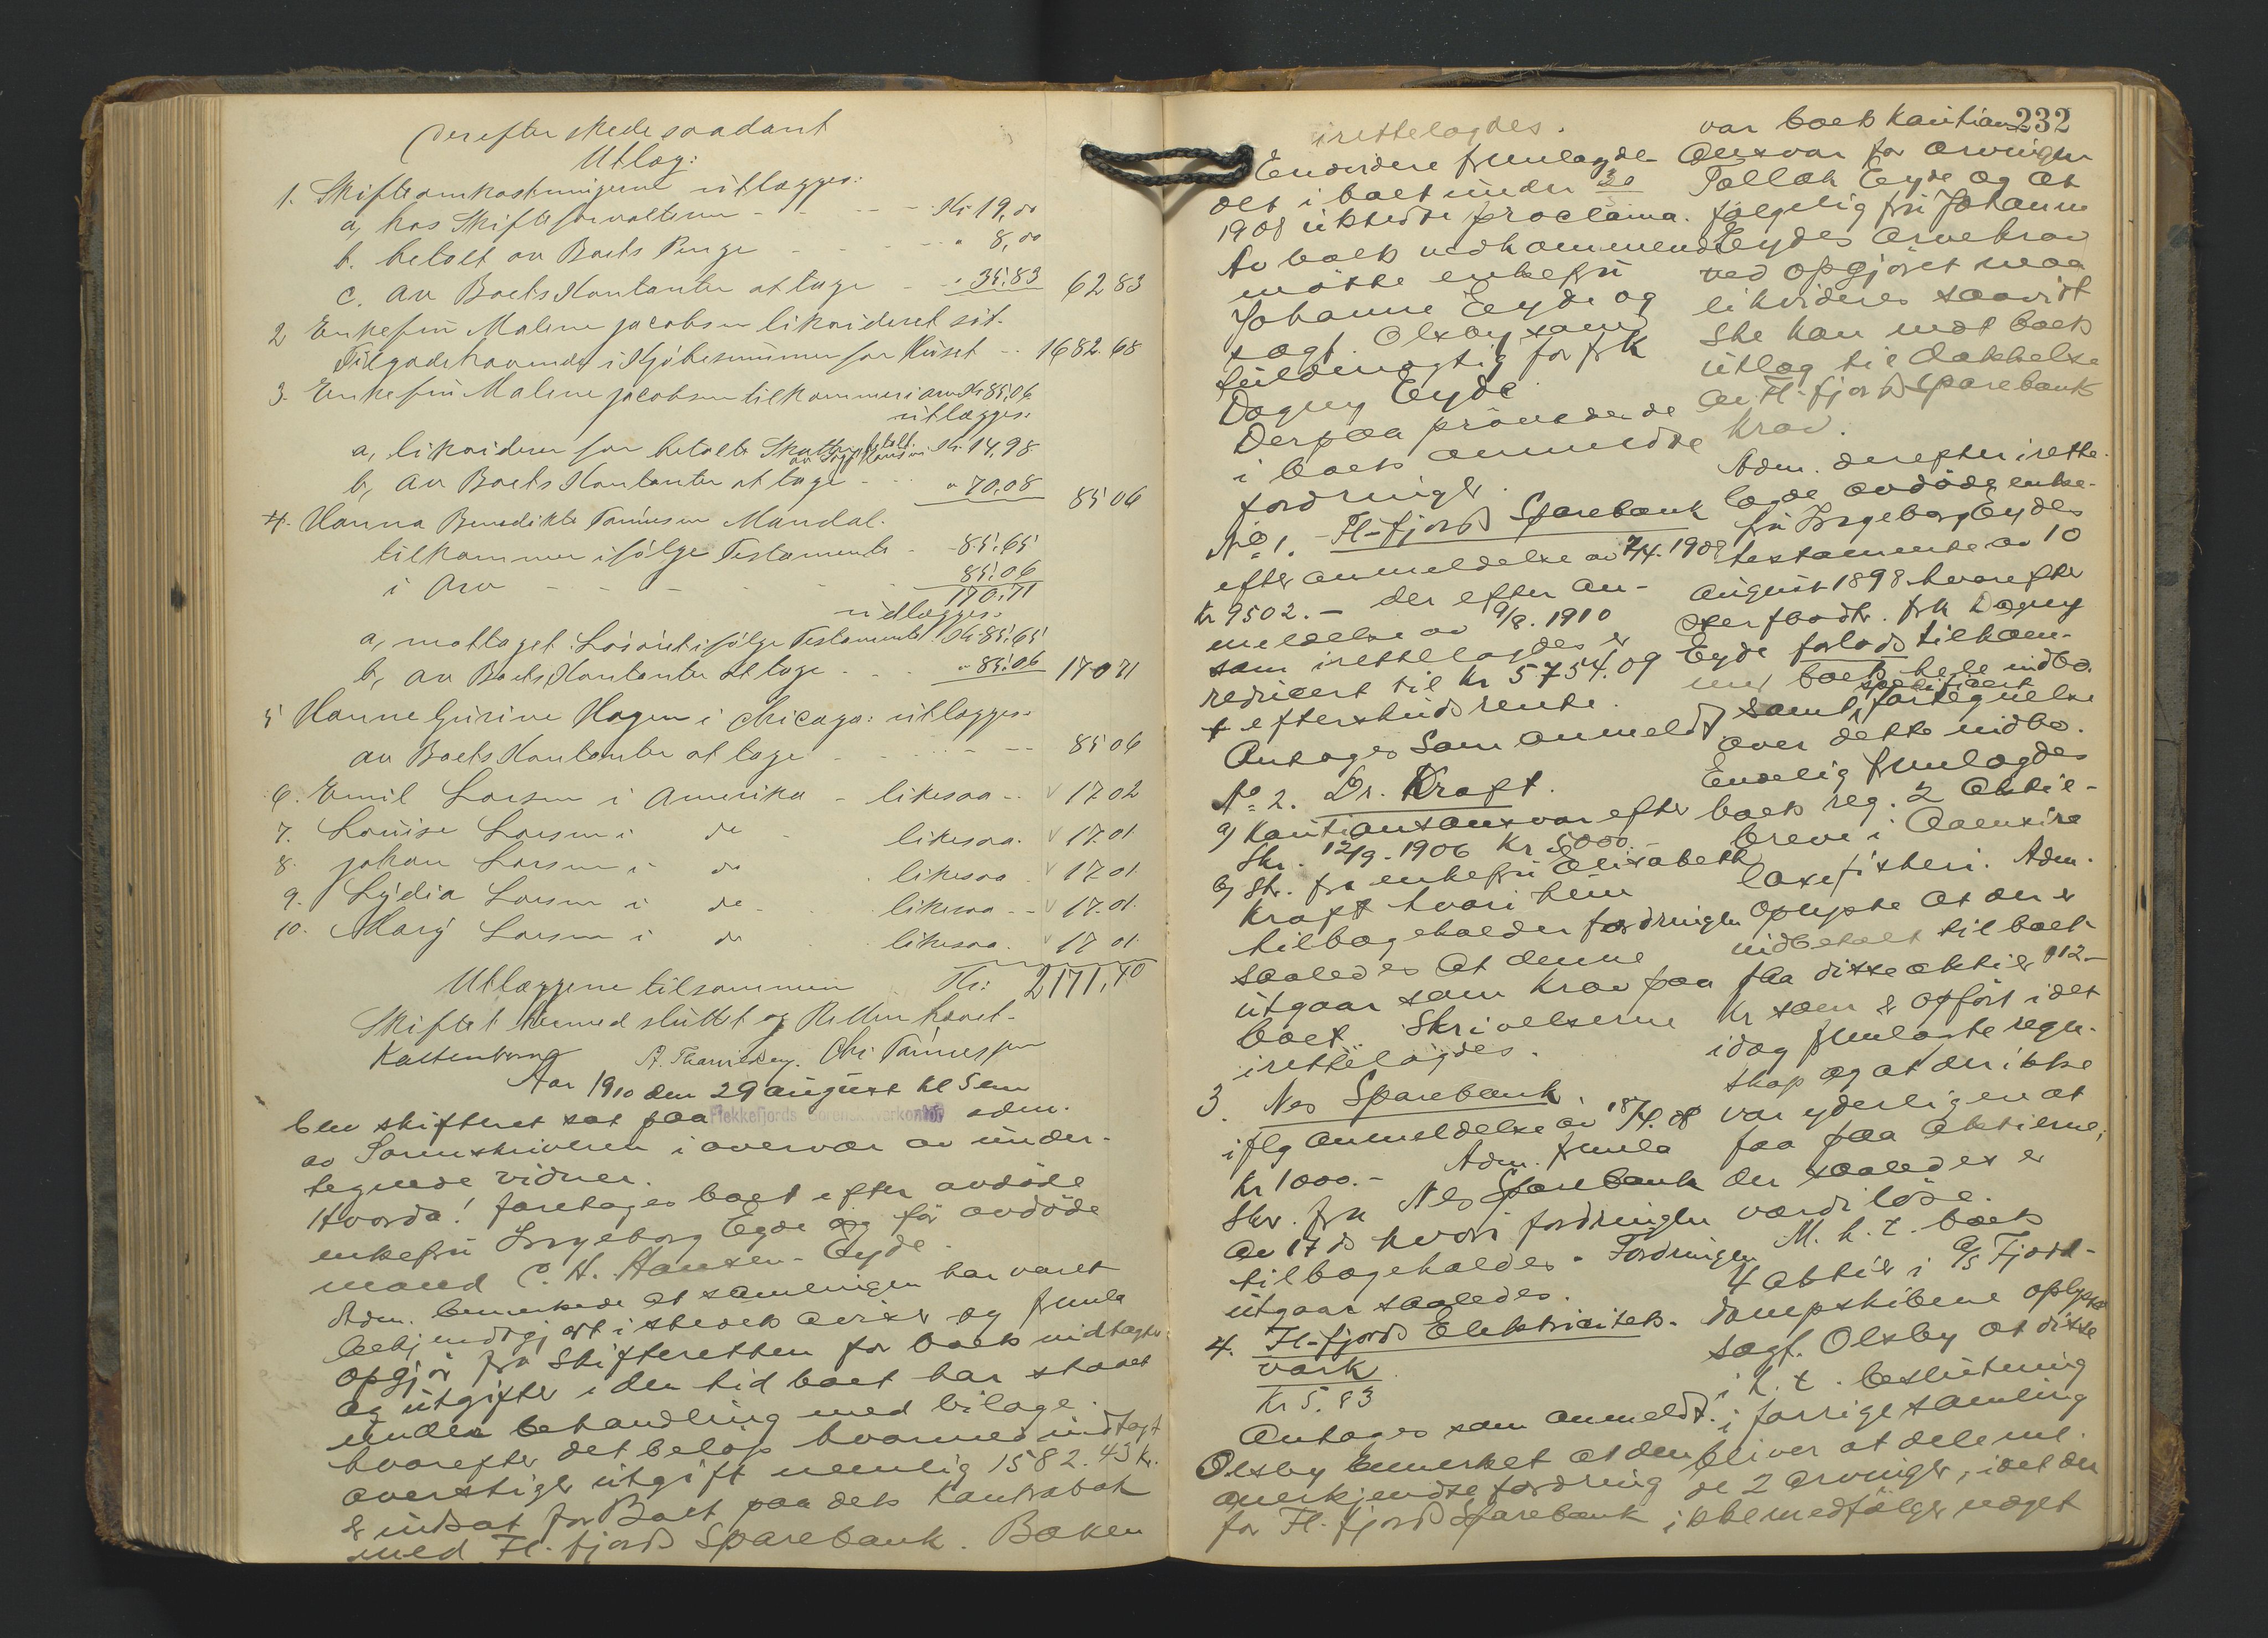 Derefter skede saadant
Utlæg:
1. Skifteomkostningerne utlægges:
a, hos Skifteforvalteren - - - - Kr 19,00
b. betalt av Boets Penge - - - - " 8,00
c. av Boets Kontanter at tage - - " 35.83 62 83
2 Enkefru Malene Jacobsen likvideret sit
Tilgodehavende i Kjøbesummen for Huset - - 1682.68
3. Enkefru Malene Jacobsen tilkommer i arv Kr 85,06
utlægges:
a, likviderer for betalte Skatter betalt av Sagf. Kr. 14,98
b, av Boets Kontanter at tage - - - " 70,08 85 06
4. Hanna Benedikte Tønnesen Mandal.
tilkommer ifølge Testamente - 85.65
i Arv - - - - - - 85,06
170.71
utlægges:
a, mottaget Løsøre ifølge Testamente Kr 85,65
b, av Boets Kontanter at tage - - - " 85,06 170 71
5 Hanne Gurine Hagen i Chicago: utlægges:
av Boets Kontanter at tage - - - - - 85 06
6. Emil Larsen i Amerika - likesaa - - 17 02
7. Louise Larsen i do - likesaa. 17.01
8. Johan Larsen i do likesaa 17 01
9. Lydia Larsen i do - likesaa - - 17.01
10. Mary Larsen i do likesaa. 17 01
Utlæggene tilsammen Kr: 2171,40
Skiftet hermed sluttet og Retten hævet.
Chr Tønnessen
Aar 1910 den 29 august kl 5 em
blev skifteret sat paa Flekkefjords Sorenskriverkontor adm.
av Sorenskriveren i overvær av under-
tegnede vidner.
Hvorda! foretages boet efter avdøde
enkefru Ingeborg Eyde og før avdøde
mand C. H. Hansen-Eyde.
Adm. bemerkede at samlingen har været
bekjendtgjort i stedets aviser og fremla
opgjør fra Skifteretten for boets indtægter
og utgifter i den tid boet har staaet
under behandling med bilage.
hvorefter det beløp hvormed indtægt
overstiger utgift nemlig 1582.43 kr.
er indsat for Boet paa dets kontrabok
med Fl.fjords Sparebank. Boken
irettelagdes.
Endvidere fremlagdes
det i boet under
1908 utstedte proclama.
Av boets vedkommende
møtte enkefru
Johanne Eyde og
sagf. Olsby som
fuldmægtig for frk
Dagny Eyde.
Derpaa prøvedes de
i boets anmeldte
fordringer.
No 1. Fl-fjords Sparebank
efter anmeldelse av 7/4. 1908
Kr 9502.- der efter an-
meldelse av 9/8. 1910
som irettelagdes er
reducert til Kr 5754.09
+ efterskuds rente.
Antages som anmeldt
No 2. Dr. Kraft.
a) Kautionsansvar efter
Skr. 12/9. 1906 Kr 5000.-
b) Skr. fra enkefru Elisabeth
Kraft hvori hun
tilbageholder fordringen
saaledes at denne
utgaar som krav paa
boet. Skrivelserne
irettelagdes.
3. Nes Sparebank
iflg anmeldelse av 18/4. 08
Kr 1000.- Adm. fremla
Skr. fra Nes Sparebank
av 17 ds hvori fordringen
tilbageholdes. Fordringen
utgaar saaledes.
4. Fl-fjords Elektricitets-
værk
Kr 5.83
Antages som anmeldt.
Olsby bemerket at den
anerkjendte fordring
for Fl.-fjords Sparebank
232
var boets kautions
ansvar for arvingen
Pollok Eyde og at
følgelig fru Johanne
Eydes arvekrav
ved opgjøret maa
likvideres saavidt
ske kan mot boets
utlæg til dækkelse
av Fl.-fjords Sparebank
krav.
Adm. derefter irette-
lagde avdøde enke-
fru Ingeborg Eydes
testamente av 10
august 1898 hvorefter
frk Dagny
Eyde forlods tilkom-
mer boets hele indbo.
samt specificert fortegnelse
over dette indbo.
Endelig fremlagdes
boets reg. 2 aktie-
breve i Aaensire
laxefiskeri. Adm.
oplyste at der er
indbetalt til boet
paa disse aktier 112.-
Kr som er opført i det
idag fremlagte regn-
skap og at der ikke
var yderligere at
faa paa aktierne,
der saaledes er
værdiløse.
M. h. t. boets
4 aktier i A/S Fjord-
dampskibene oplyste
sagf. Olsby at disse
i h. t. beslutning
i forrige samling
bliver at dele ml.
de 2 arvinger, idet der
ikke medfølger noget